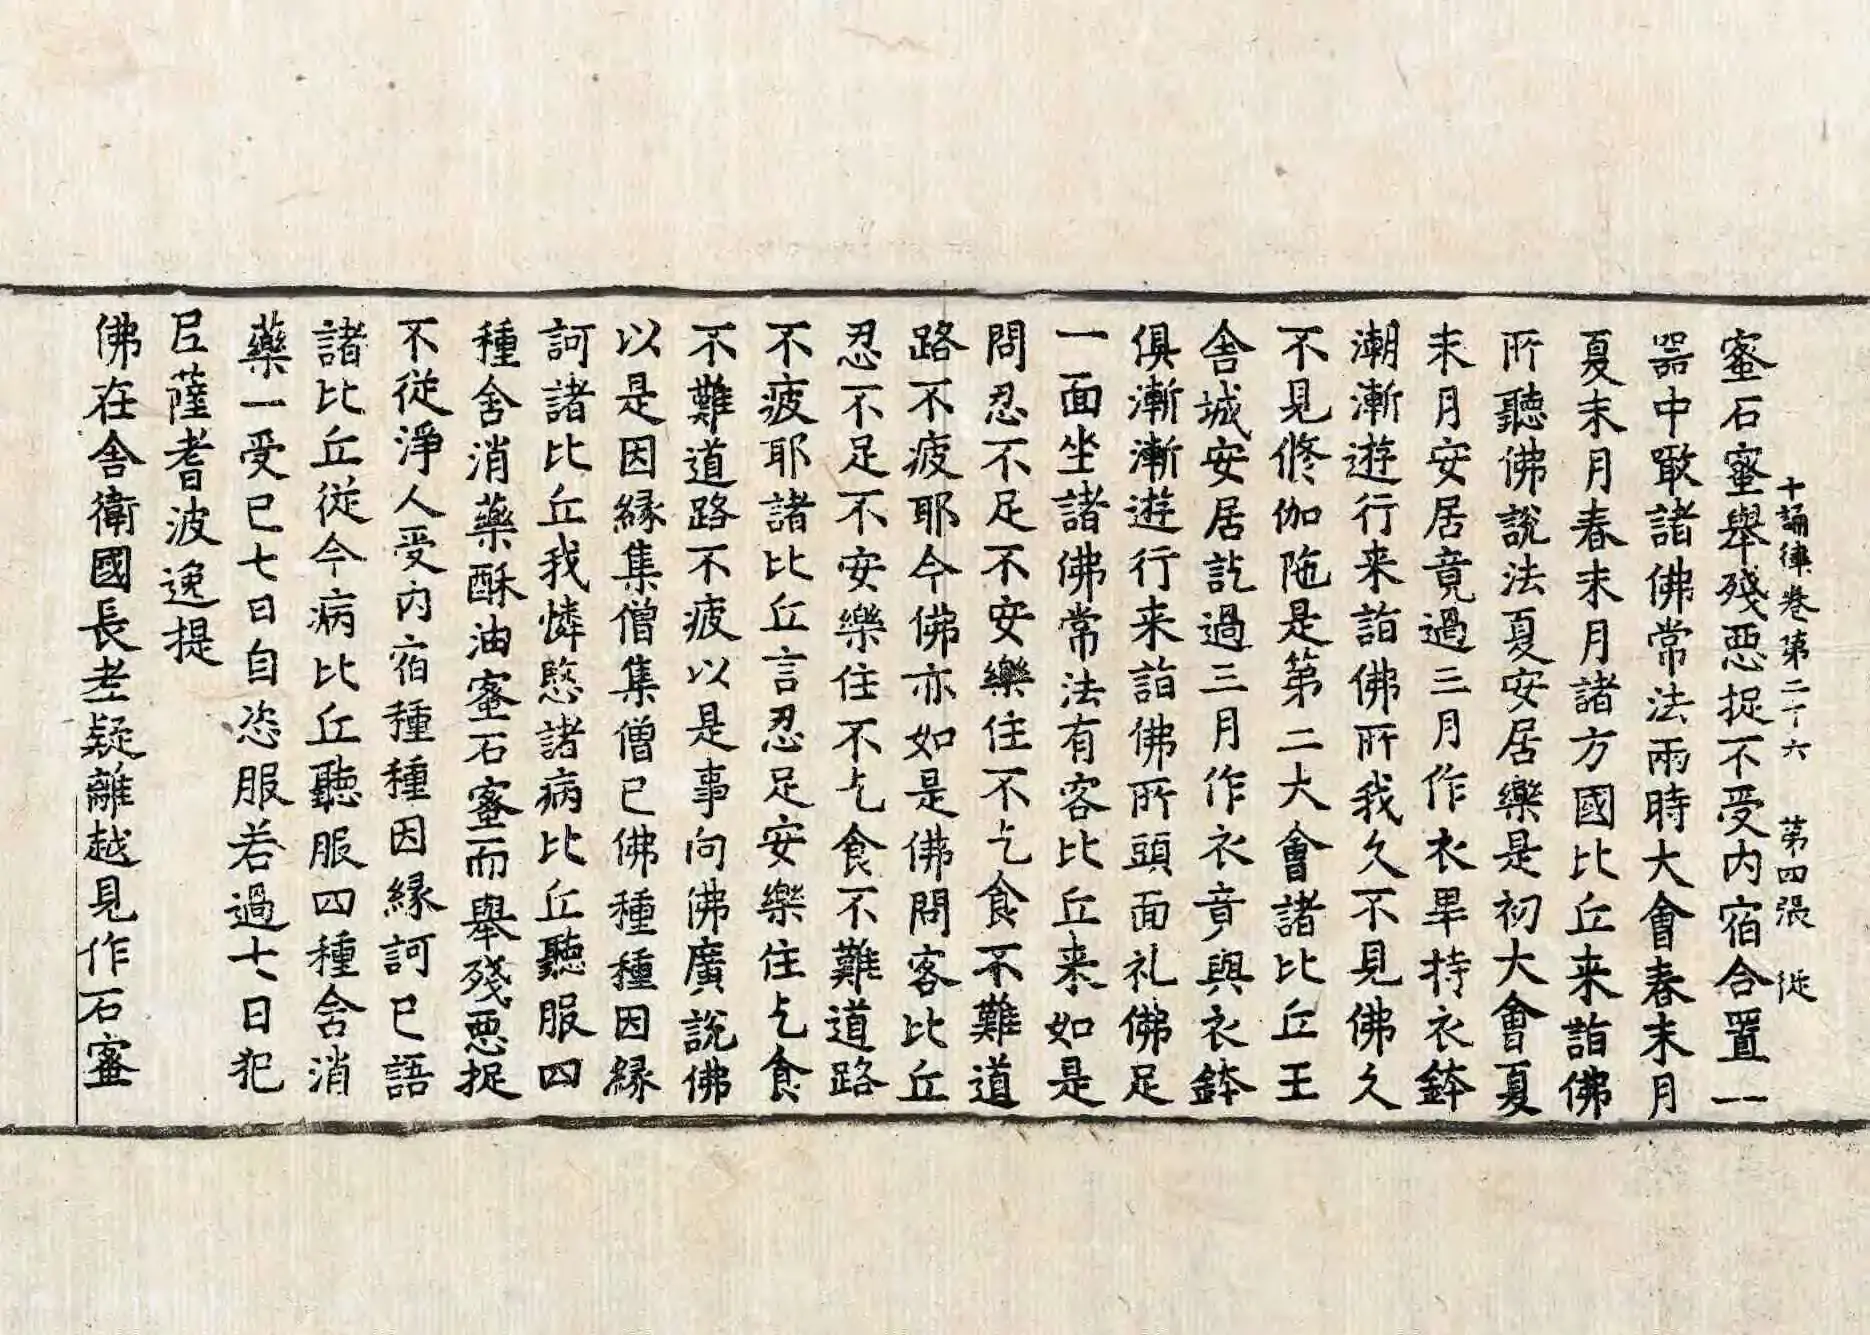 十誦律卷第二十六　第四張　從
蜜石蜜舉殘惡捉不受內宿合置一
器中噉諸佛常法兩時大會春末月
夏末月春末月諸方國比丘来詣佛
所聽佛說法夏安居樂是初大會夏
末月安居竟過三月作衣畢持衣鉢
漸漸遊行来詣佛所我久不見佛久
不見脩伽陁是第二大會諸比丘王
舍城安居訖過三月作衣竟與衣鉢
俱漸漸遊行来詣佛所頭面礼佛足
一面坐諸佛常法有客比丘来如是
問忍不足不安樂住不乞食不難道
路不疲耶今佛亦如是佛問客比丘
忍不足不安樂住不乞食不難道路
不疲耶諸比丘言忍足安樂住乞食
不難道路不疲以是事向佛廣說佛
以是因緣集僧集僧已佛種種因緣
訶諸比丘我憐愍諸病比丘聽服四
種含消藥酥油蜜石蜜而舉殘惡捉
不從淨人受內宿種種因緣訶已語
諸比丘從今病比丘聽服四種含消
藥一受已七日自恣服若過七日犯
尼薩耆波逸提
佛在舍衛國長老疑離越見作石蜜